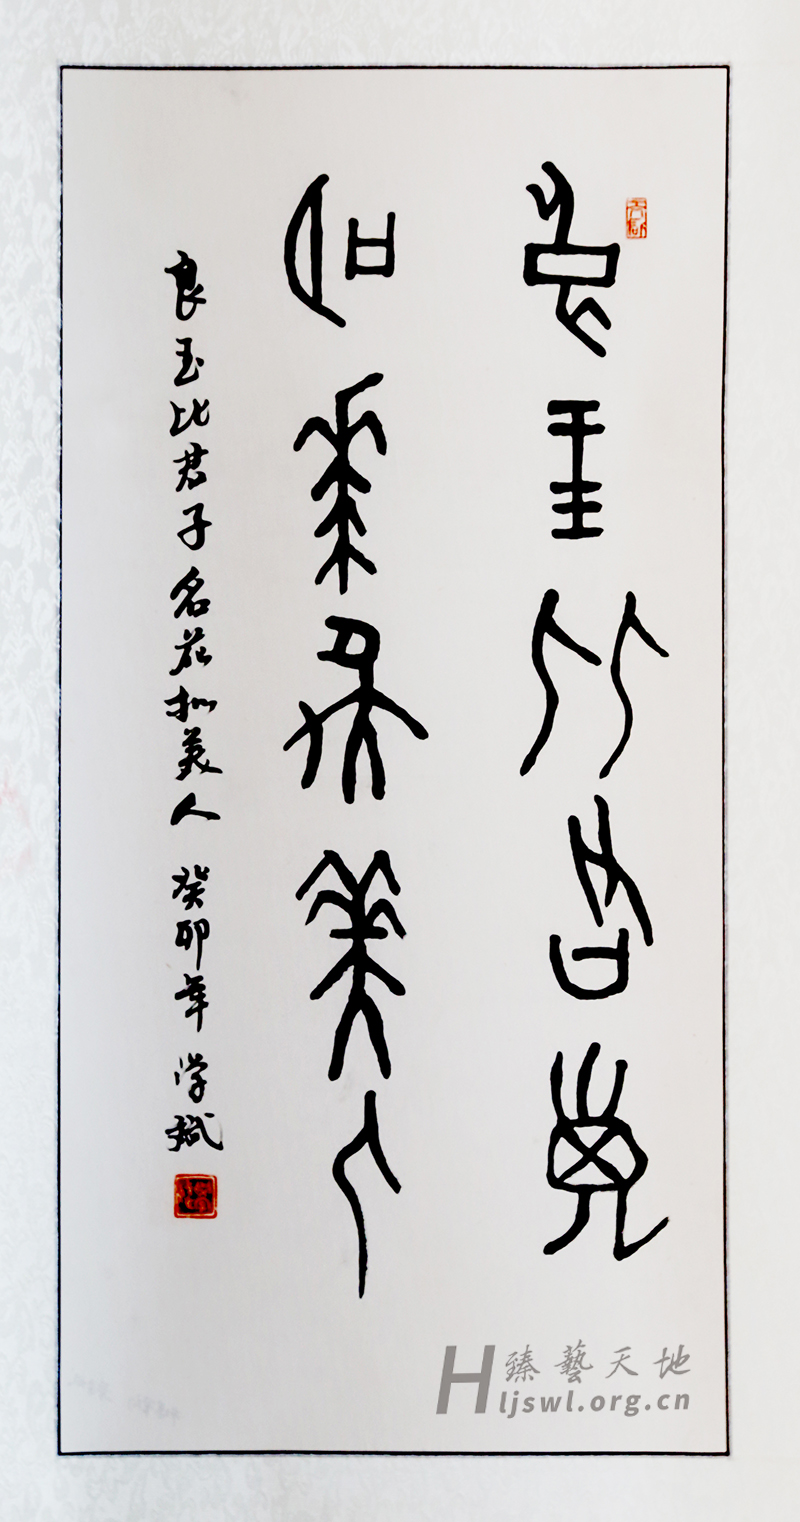 良玉比君子
名花拟美人
良玉比君子名花拟美人 癸卯年 学斌
臻藝天地
Hljswl.org.cn